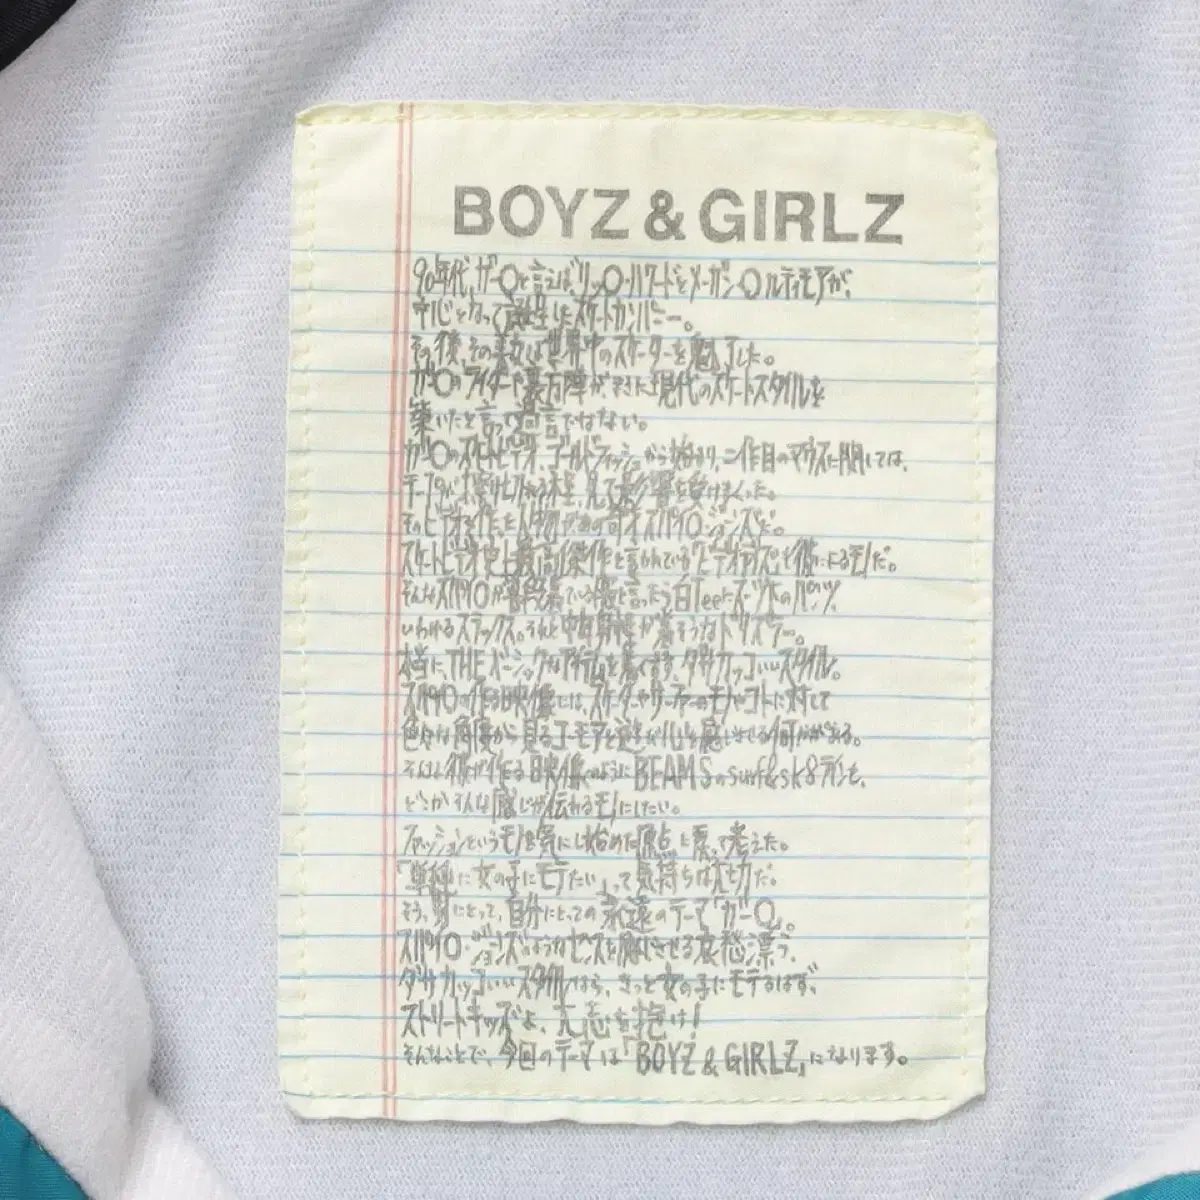 BOYZ & GIRLZ
90年代、ガー〇と言えばリッ〇・ハワードとメーガン・〇ルティモアが、
中心となって誕生したスケートカンパニー。
その後、その集大は世界中のスケーターを魅了した。
ガー〇のライダーや裏方陣が、まさに現代のスケートスタイルを
築いたと言って過言ではない。
ガー〇のスケートビデオ、ゴールドフィッシュから始まり、二作目のマウスに関しては、
テープが擦り切れる程、見て影響を受けまくった。
そのビデオを作った人物があの奇才スパイ〇・ジョンズだ。
スケートビデオ史上最高傑作と言われている「ビデオデイズ」も彼によるモノだ。
そんなスパイ〇が普段着ている服と言ったら白Teeにズーツ木のパンツ、
いわゆるスラックス。それと中身が着そうなドクズラー。
本当に、THE ベーシックなアイテムを着こなす、ダサカッコいいスタイル。
スパイク〇の作る映像には、スケーターやサーファーのモノやコトに対して
色々な角度から見るユーモアと遊び心を感じさせる何かがある。
そんな彼が作る映像のようにBEAMSのsurf&sk8ラインも、
どこかそんな感じが伝わるモノにしたい。
ファッションというモノを気にし始めた原点に戻って考えた。
「単純に女の子にモテたい」って気持ちは大切だ。
そう、男にとって、自分にとっての永遠のテーマ「ガー〇」。
スパイ〇・ジョーンズのようなセンスを感じさせる哀愁漂う、
ダサカッコいいスタイルなら、きっと女の子にモテるはず、
ストリートキッズよ、大志を抱け！
そんなことで、今回のテーマは「BOYZ & GIRLZ」になります。